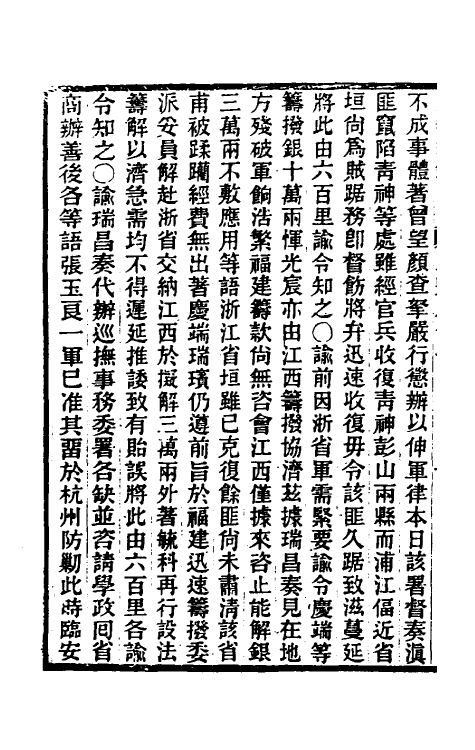 不成事體著曾望顏查拏嚴行懲辦以伸軍律本日該署督奏滇
匪竄陷靑神等處雖經官兵收復靑神彭山兩縣而浦江偪近省
垣尙爲賊踞務卽督飭將弁迅速收復毋令該匪久踞致滋蔓延
將此由六百里諭令知之〇諭前因浙省軍需緊要諭令慶端等
籌撥銀十萬兩惲光宸亦由江西籌撥協濟玆據瑞昌奏見在地
方殘破軍餉浩繁福建籌款尙無咨會江西僅據來咨止能解銀
三萬兩不敷應用等語浙江省垣雖已克復餘匪尙未肅淸該省
甫被蹂躪經費無出著慶端瑞璸仍遵前旨於福建迅速籌撥委
派妥員解赴浙省交納江西於擬解三萬兩外著毓科再行設法
籌解以濟急需均不得遲延推諉致有貽誤將此由六百里各諭
令知之〇諭瑞昌奏代辦巡撫事務委署各缺並咨請學政囘省
商辦善後各等語張玉良一軍已准其畱於杭州防勦此時臨安